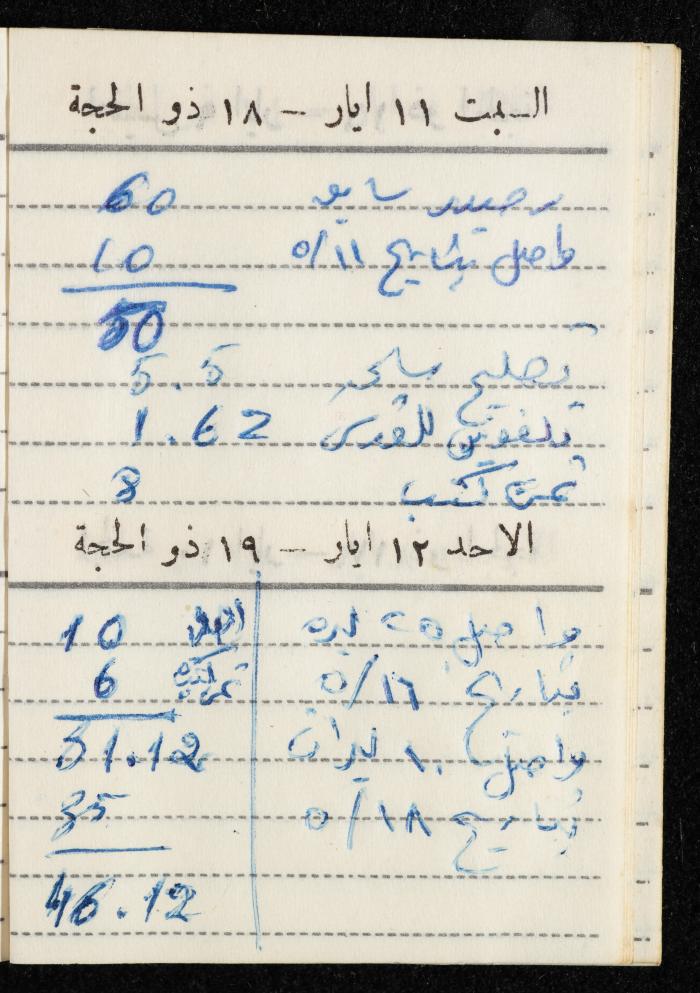 السبت ١١ ايار — ١٨ ذو الحجة
رصيد سابق 60
واصل بتاريخ ٥/١١ 10
50
تصليح 5.5
تلفون للقدس 1.62
ثمن كتب 8
الاحد ١٢ ايار — ١٩ ذو الحجة
واصل ٢٥ ليره 10
بتاريخ ٥/١٦ ثمن كتب 6
واصل ١٠ ليرات 81.12
بتاريخ ٥/١٨ 35
46.12